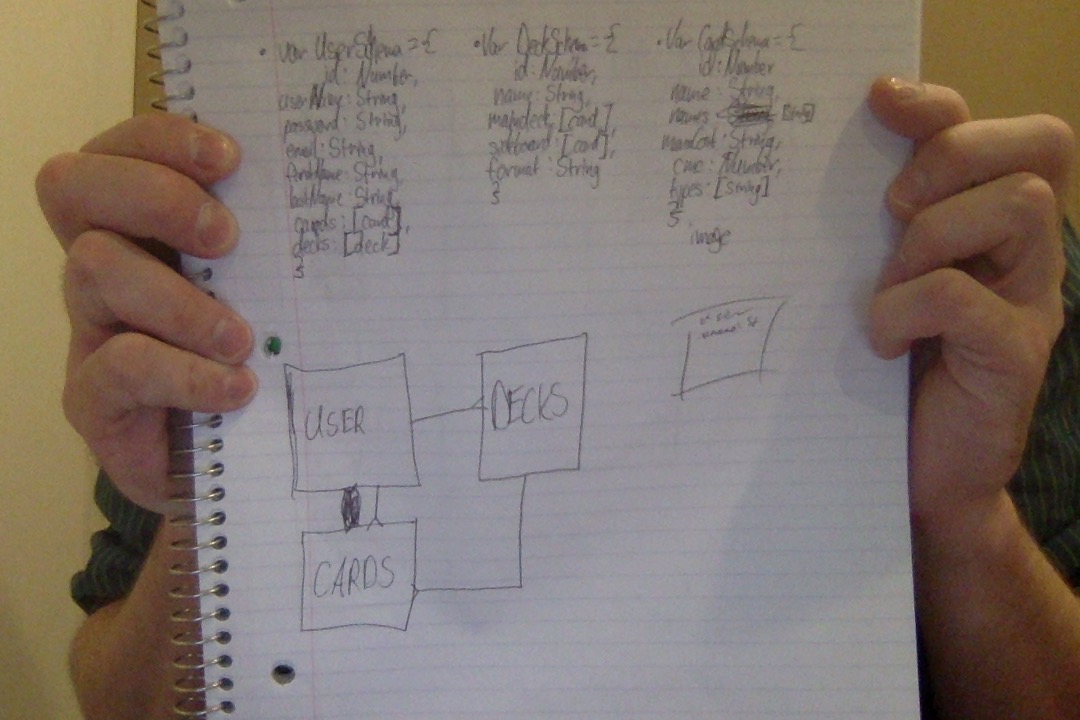 • Var UserSchema = {
id: Number,
userName: String,
password: String,
email: String,
firstName: String,
lastName: String,
cards: [card],
decks: [deck]
}
• Var DeckSchema = {
id: Number,
name: String,
maindeck: [card],
sideboard: [card],
format: String
}
• Var CardSchema = {
id: Number
name: String,
names [String]
manaCost: String,
cmc: Number,
types: [String]
}
image
USER
DECKS
CARDS